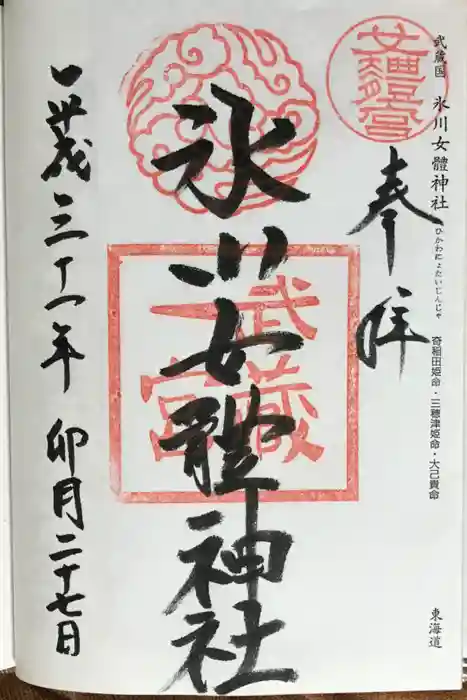 武蔵国 氷川女體神社 ひかわにょたいじんじゃ 奇稲田姫命・三穂津姫命・大己貴命 東海道
奉拝
氷川女體神社
武蔵
一宮
平成三十一年 卯月二十七日